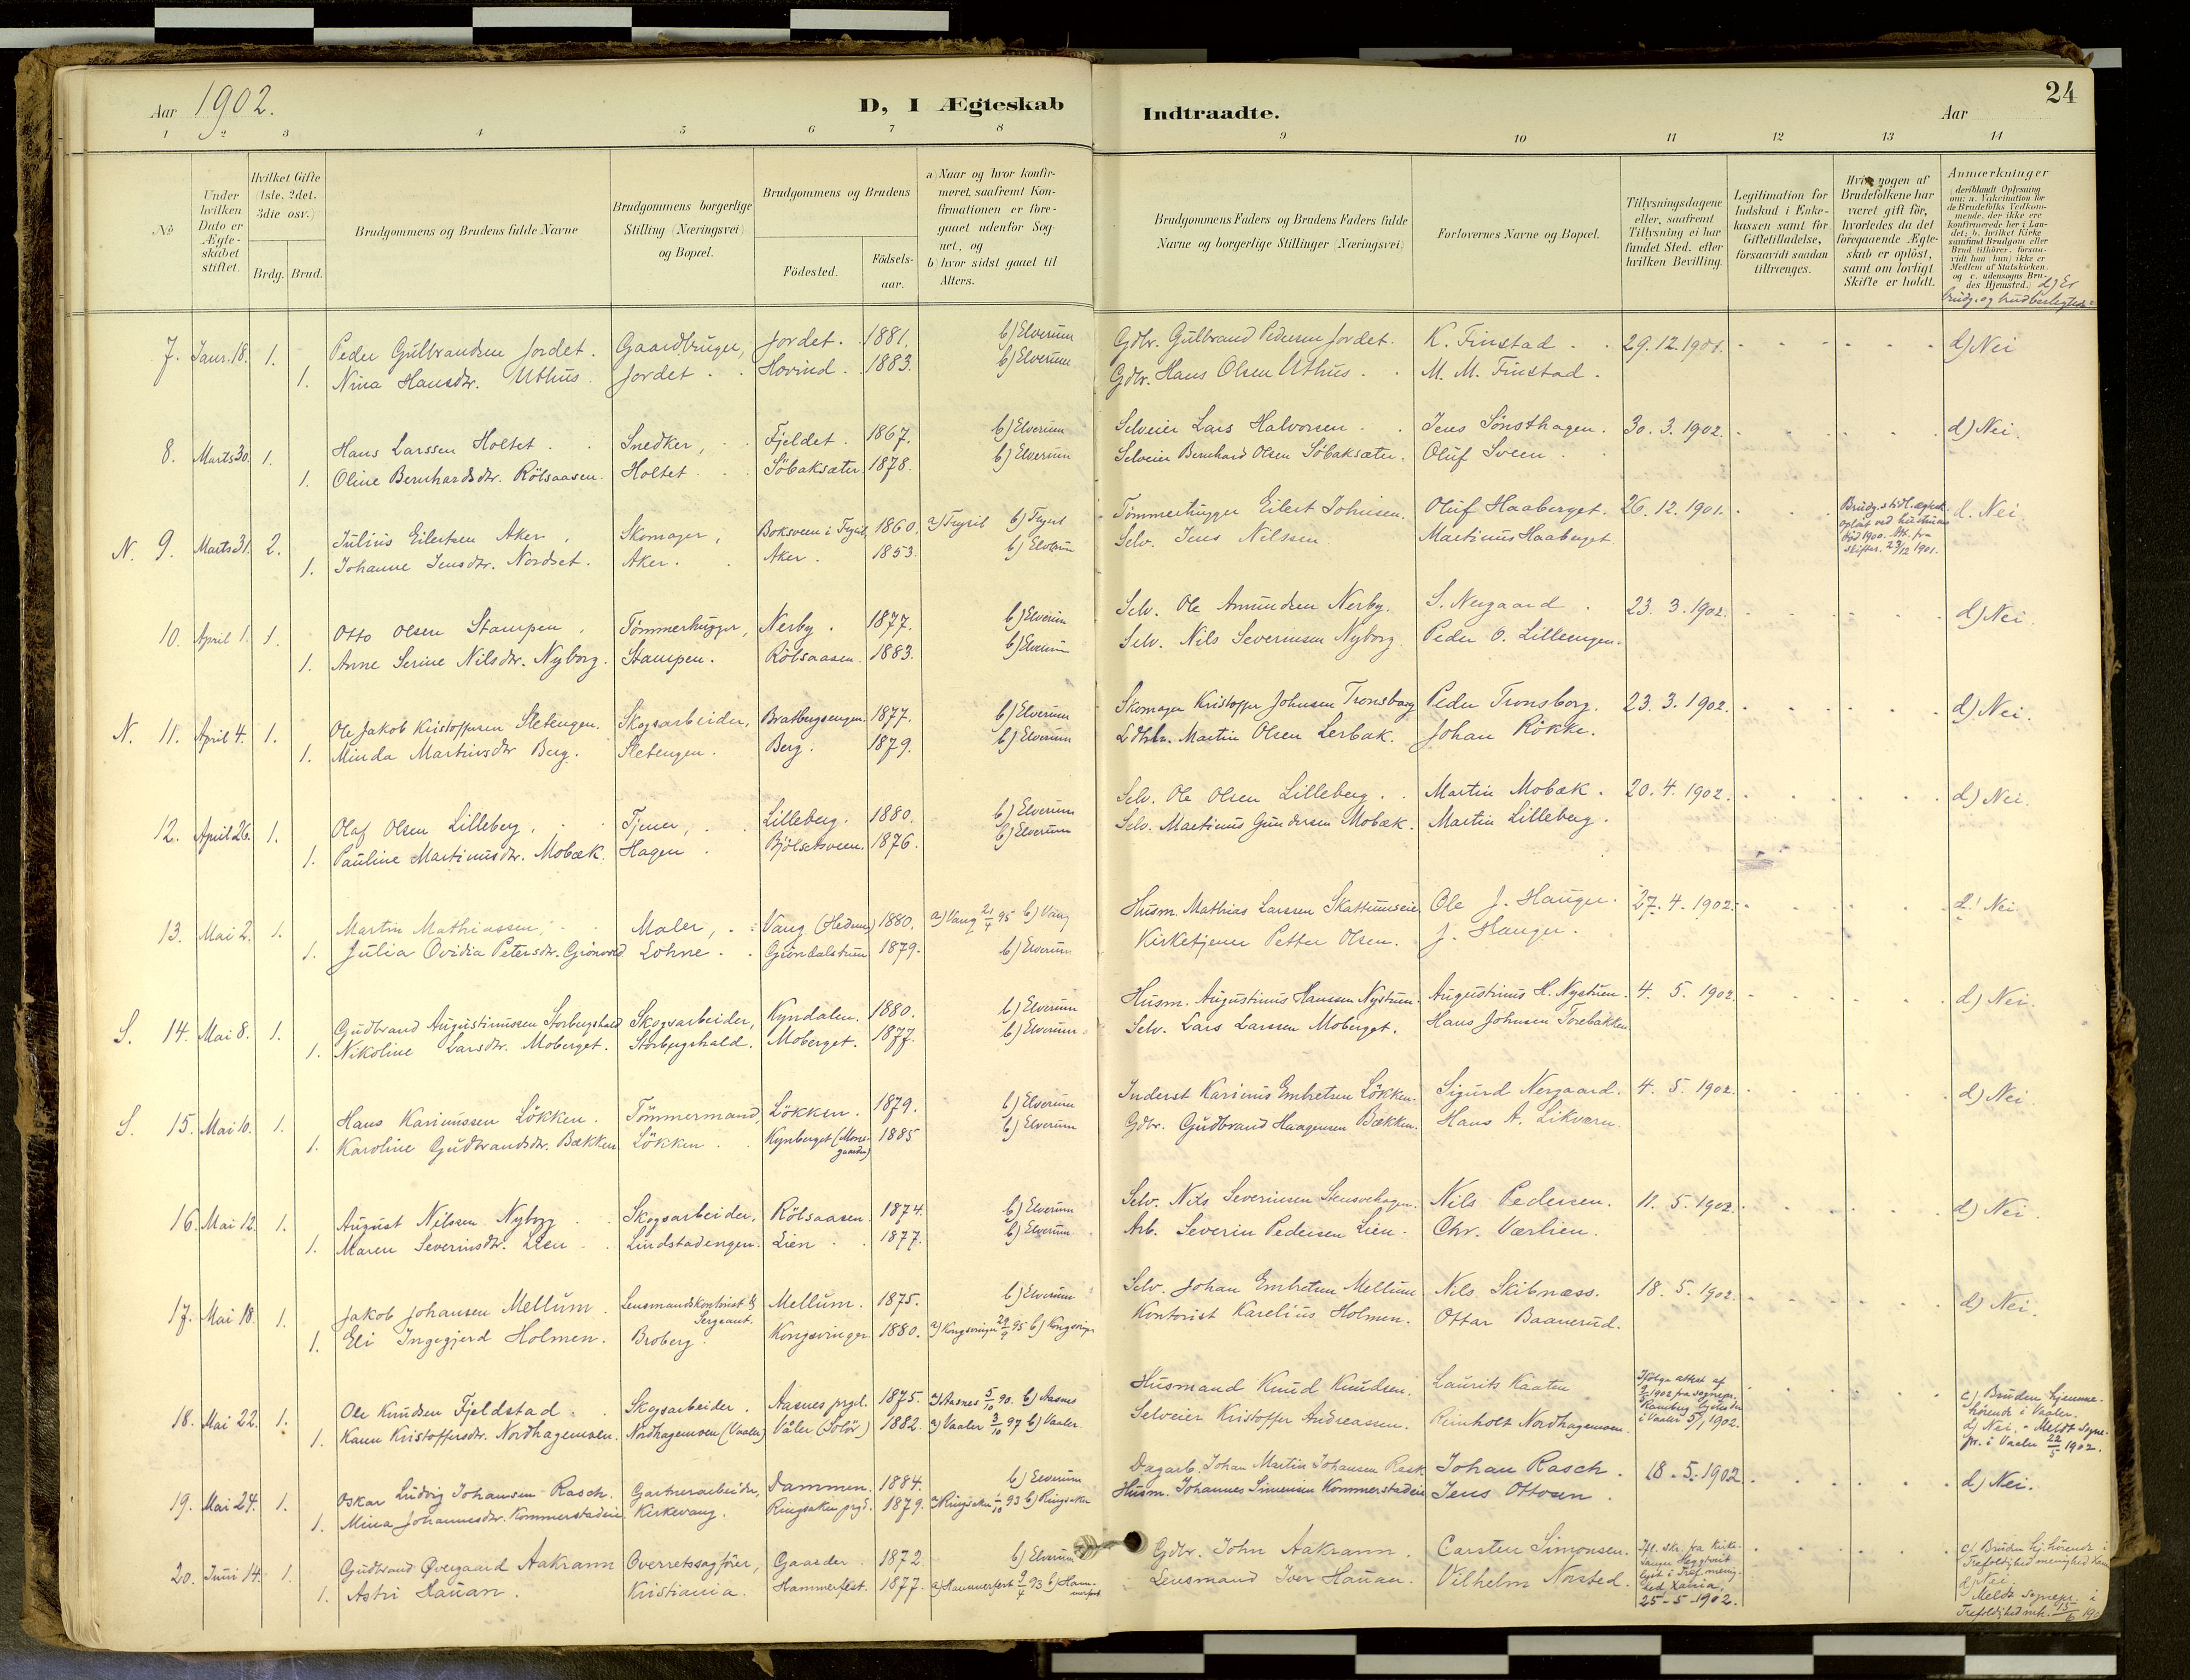 Aar 1902.
D, I Ægteskab
Indtraadte.
Aar
24
1 2 3 4 5 6 7 8 9 10 11 12 13 14
No
Under hvilken Dato er Ægteskabet stiftet.
Hvilket Gifte (1ste, 2det, 3die osv.)
Brdg. Brud.
Brudgommens og Brudens fulde Navne
Brudgommens borgerlige Stilling (Næringsvei) og Bopæl.
Brudgommens og Brudens
Födested.
Födselsaar.
a) Naar og hvor konfirmeret, saafremt Konfirmationen er foregaaet udenfor Sognet, og
b) hvor sidst gaaet til Alters.
Brudgommens Faders og Brudens Faders fulde Navne og borgerlige Stillinger (Næringsvei)
Forlovernes Navne og Bopæl.
Tillysningsdagene eller, saafremt Tillysning ei har fundet Sted, efter hvilken Bevilling.
Legitimation for Indskud i Enkekassen samt for Giftetilladelse, forsaavidt saadan tiltrænges.
Hvis nogen af Brudefolkene har været gift för, hvorledes da det foregaaende Ægteskab er oplöst, samt om lovligt Skifte er holdt.
Anmærkninger (deriblandt Oplysning om: a. Vakcination for de Brudefolks Vedkommende, der ikke ere konfirmerede her i Landet; b. hvilket Kirkesamfund Brudgom eller Brud tilhörer, forsaavidt han (hun) ikke er Medlem af Statskirken, og c. udensogns Brudes Hjemsted.) d) Er brudg. og brud beslegtede?
7. Janr. 18. 1. Peder Gulbrandsen Jordet. Gaardbruger, Jordet. 1881. b) Elverum Gdbr. Gulbrand Pedersen Jordet. K. Finstad 29.12.1901. d) Nei
1. Nina Hansdtr. Uthus. Jordet. Hovind. 1883. b) Elverum Gdbr. Hans Olsen Uthus. M. M. Finstad.
8. Marts 30. 1. Hans Larssen Holtet. Snedker, Fjeldet. 1867. b) Elverum Selveier Lars Halvorsen. Jens Sönsthagen. 30.3.1902. d) Nei.
1. Oline Bernhardsdtr. Rölsaasen. Holtet. Söbaksæter. 1878. b) Elverum Selveier Bernhard Olsen Söbaksæter. Oluf Sveen.
N. 9. Marts 31. 2. Julius Eilertsen Aker, Skomager, Boksveen i Trysil. 1860. a) Trysil b) Trysil Tömmerhugger Eilert Johnsen. Oluf Haaberget. 26.12.1901. Brudg.s tidl. ægtesk. oplöst ved hustruens död 1900. Att. fra skifter. 23/12 1901. d. Nei
1. Johanne Jensdtr. Nordset. Aker. Aker. 1853. b) Elverum Selv. Jens Nilssen Martinus Haaberget.
10. April 1. 1. Otto Olsen Stampen, Tömmerhugger, Nerby. 1877. b) Elverum Selv. Ole Amundsen Nerby. S. Nergaard. 23.3.1902. d) Nei.
1. Anne Serine Nilsdtr. Nyborg. Stampen. Rölsaasen. 1883. b) Elverum Selv. Nils Severinsen Nyborg. Peder O. Lilleengen.
N. 11. April 4. 1. Ole Jakob Kristoffersen Sletengen. Skogsarbeider, Bratbergsengen. 1877. b) Elverum Skomager Kristoffer Johnsen Tronsborg Peder Tronsborg. 23.3.1902. d) Nei.
1. Minda Martinsdtr Berg. Sletengen. Berg. 1879. b) Elverum Ldhdlr. Martin Olsen Lerbak. Johan Rökke.
12. April 26. 1. Olaf Olsen Lilleberg, Tjener, Lilleberg. 1880. b) Elverum Selv. Ole Olsen Lilleberg. Martin Mobæk. 20.4.1902. d) Nei.
1. Pauline Martinusdtr. Mobæk. Hagen. Bjölsetsveen. 1876. b) Elverum Selv. Martinus Gundersen Mobæk. Martin Lilleberg.
13. Mai 2. 1. Martin Mathiassen, Maler, Vang (Hedem.) 1880. a) Vang 21/4 95 b) Vang Husm. Mathias Larssen Skattumseie Ole J. Hauger. 27.4.1902. d! Nei.
1. Julia Ovidia Petersdtr. Grönvold Lohne. Gröndalstuen 1879. b) Elverum Kirketjener Petter Olsen. J. Hauger.
S. 14. Mai 8. 1. Gudbrand Augustinussen Storbergshald Skogsarbeider, Kyndalen. 1880. b) Elverum Husm. Augustinus Hanssen Nystuen. Augustinus H. Nystuen. 4.5.1902. d) Nei.
1. Nikoline Larsdtr. Moberget. Storbergshald. Moberget. 1877. b) Elverum Selv. Lars Larssen Moberget. Hans Johnsen Torebakken
S. 15. Mai 10. 1. Hans Karinussen Lökken. Tömmermand, Lökken. 1879. b) Elverum Inderst Karinus Embretsen Lökken. Sigurd Nergaard. 4.5.1902. d) Nei.
1. Karoline Gudbrandsdtr. Bækken. Lökken. Kynberget (Mons-gaarden) 1885 b) Elverum Gdbr. Gudbrand Haagensen Bækken. Hans A. Likvarn.
16. Mai 12. 1. August Nilssen Nyborg Skogsarbeider. Rölsaasen. 1874. b) Elverum Selv. Nils Severinsen Stensvehagen. Nils Pedersen. 11.5.1902. d) Nei.
1. Maren Severinsdtr. Lien Lindstadengen. Lien 1877. b) Elverum Arb. Severin Pedersen Lien. Chr. Værlien.
17. Mai 18. 1. Jakob Johansen Mellum. Lensmandskontorist & Sergeant. Mellum. 1875. b) Elverum Selv. Johan Embretsen Mellum Nils Skibnæss. 18.5.1902. d) Nei.
1. Eli Ingegjerd Holmen. Broberg. Kongsvinger 1880. a) Kongsvinger 29/9 95 b) Kongsvinger Kontorist Karelius Holmen. Ottar Baanerud.
18. Mai 22. 1. Ole Knudsen Fjeldstad. Skogsarbeider. Aasnes prgd. 1875. a) Aasnes 5/10 90. b) Aasnes Husmand Knud Knudsen. Laurits Kaaten Ifölge attest af 1902 fra sognepr. Ramberg lyst i Vaaler 5/1 1902. c) Bruden hjemmehörende i Vaaler. d) Nei. - Meldt sognepr. i Vaaler 22/5 1902.
1. Karen Kristoffersdtr. Nordhagenveen. Nordhagenveen (Vaaler) Våler (Solör) 1882. a) Vaaler 3/10 97 b) Vaaler. Selveier Kristoffer Andreassen. Reinholt Nordhagenveen.
19. Mai 24. 1. Oskar Ludvig Johansen Rasch. Gartnerarbeider, Dammen. 1884. b) Elverum Dagarb. Johan Martin Johansen Rask Johan Rasch. 18.5.1902 d) Nei.
1. Mina Johannesdtr. Kommerstadeie. Kirkevang. Ringsaker prgd. 1879. a) Ringsaker 1/10 93 b) Ringsaker Husm. Johannes Simensen Kommerstadeie Jens Ottosen
20. Juni 14. 1. Gudbrand Øvergaard Aakrann Overretssagförer, Gaarder. 1872. b) Elverum Gdbr. John Aakrann. Carsten Simonsen. Ifl. skr. fra kirkesanger Heggtveit lyst i Tref. menighed, Xania, 25-5-1902. c) Bruden hj.hörende i Trefoldighed menighed Xania d) Nei. Meldt sognepr. i Trefoldighed mh. 15/6 190
1. Astri Hauan. Kristiania. Hammerfest. 1877. a) Hammerfest 9/4 93 b) Hammerfest Lensmand Iver Hauan. Vilhelm Norsted.